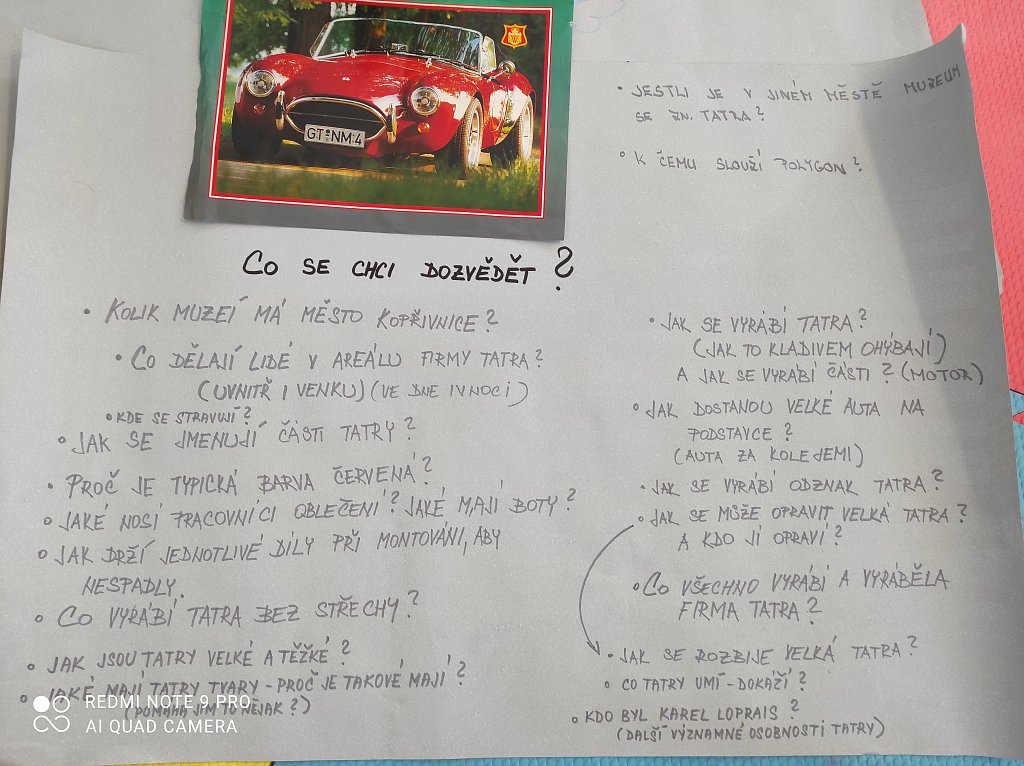 GT NM 4
• JESTLI JE V JINÉM MĚSTĚ MUZEUM
SE ZN. TATRA?
• K ČEMU SLOUŽÍ POLYGON?
CO SE CHCI DOZVĚDĚT?
• KOLIK MUZEÍ MÁ MĚSTO KOPŘIVNICE?
• CO DĚLAJÍ LIDÉ V AREÁLU FIRMY TATRA?
(UVNITŘ I VENKU) (VE DNE I V NOCI)
• KDE SE STRAVUJÍ?
• JAK SE JMENUJÍ ČÁSTI TATRY?
• PROČ JE TYPICKÁ BARVA ČERVENÁ?
• JAKÉ NOSÍ PRACOVNÍCI OBLEČENÍ? JAKÉ MAJÍ BOTY?
• JAK DRŽÍ JEDNOTLIVÉ DÍLY PŘI MONTOVÁNÍ, ABY
NESPADLY.
• CO VYRÁBÍ TATRA BEZ STŘECHY?
• JAK JSOU TATRY VELKÉ A TĚŽKÉ?
• JAKÉ MAJÍ TATRY TVARY - PROČ JE TAKOVÉ MAJÍ?
(POMÁHÁ JIM TO NĚJAK?)
• JAK SE VYRÁBÍ TATRA?
(JAK TO KLADIVEM OHÝBAJÍ)
A JAK SE VYRÁBÍ ČÁSTI? (MOTOR)
• JAK DOSTANOU VELKÉ AUTA NA
PODSTAVCE?
(AUTA ZA KOLEJEMI)
• JAK SE VYRÁBÍ ODZNAK TATRA?
• JAK SE MŮŽE OPRAVIT VELKÁ TATRA?
A KDO JÍ OPRAVÍ?
• CO VŠECHNO VYRÁBÍ A VYRÁBĚLA
FIRMA TATRA?
• JAK SE ROZBIJE VELKÁ TATRA?
• CO TATRY UMÍ - DOKÁŽÍ?
• KDO BYL KAREL LOPRAIS?
(DALŠÍ VÝZNAMNÉ OSOBNOSTI TATRY)
REDMI NOTE 9 PRO
AI QUAD CAMERA